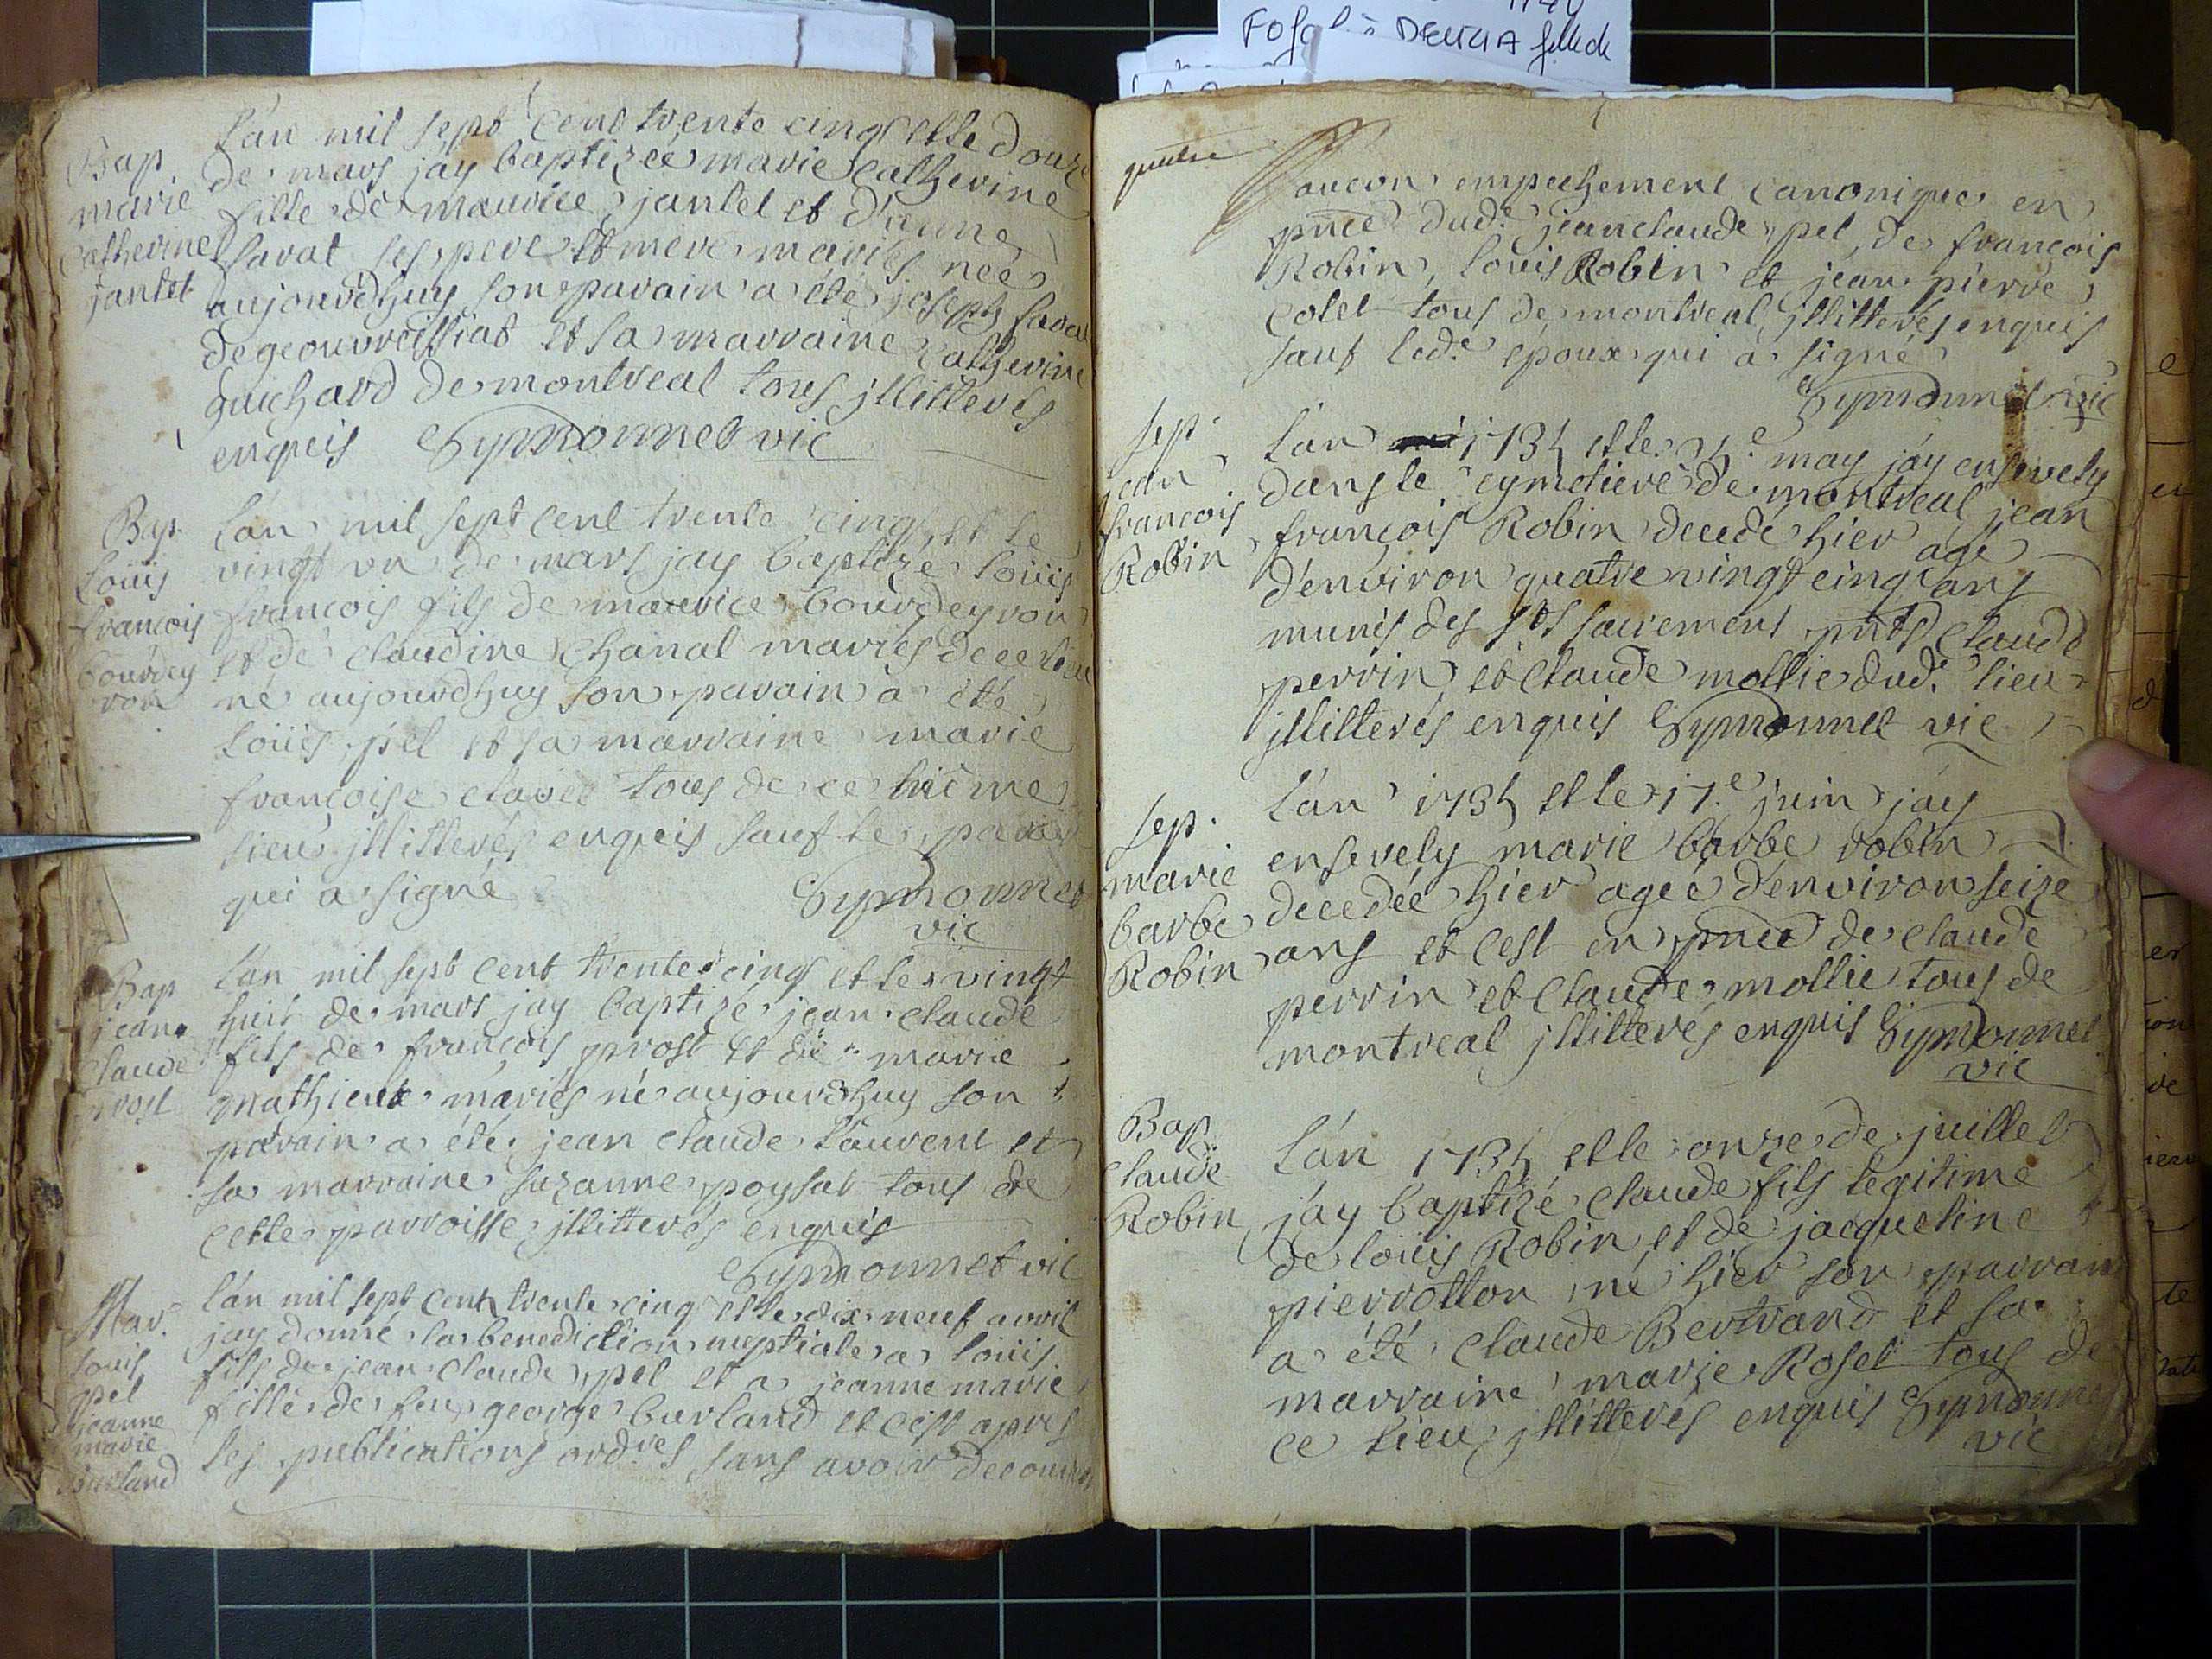 Bap.
marie
catherine
jantet
Lán mil sept cent trente cinq et le douze
de mars jáy baptizée marie catherine
fille de maurice jantet et d'
savat ses pere et mere mariés neé
aujourdhuy son parain a été joseph savat
de geouvreissiat et sa marraine catherine
guichard de montreal tous jllitterés
enquis Symonnet vic
Bap.
Loüis
francois
bourdey
ron
Lán mil sept cent trente cinq et le
vingt un de mars jay baptizé loüis
francois fils de maurice bourdeyron
et dé claudine chanal mariés de ce lieu
né aujourdhuy son parain a été
Loüis pel et sa marraine marie
françoise tous de ce même
lieu jllitterés enquis sauf le
qui a signé Symonnet
vic
Bap
jean
claude
prost
Lán mil sept cent trente cinq et le vingt
huit de mars jay baptizé jean claude
fils de françois prost et de marie
mathieux mariés né aujourdhuy son
parain a été jean claude Laurent et
sa marraine suzanne poysat tous de
cette parroisse jllitterés enquis
Symonnet vic
Mar.
louis
pel
jeanne
marie
burland
Lán mil sept cent trente cinq et le dix neuf avril
jay donné la benediction nuptiale a loüis
fils de jean claude pel et a jeanne marie
fille de feu george burland et cést apres
les publications ordres sans avoir decouvert
FOL
DELLIA fille de
aucun empechement canonique en
pnce dudt jean claude pel, de francois
Robin, Louis Robin et jean pierre
colet tous de montreal jllitterés enquis
sauf ledt epoux qui a signé
Symonnet vic
sep.
jean
francois
Robin
Lán 1735 et le may jáy ensevely
dans le cymetiere de montreal jean
françois Robin decedé hier agé
d'environ quatre vingt cinq ans
munis des sts sacrement pnts claude
perrin et claude mollie dudt lieu
jllitterés enquis Symonnet vic
sep.
marie
barbe
Robin
Lán 1735 et le 17e juin jáy
ensevely marie barbe robin
decedée hier ageé d'environ seize
ans et cest en pnce de claude
perrin et claude mollie tous de
montreal jllitterés enquis Symonnet
vic
Bap.
claude
Robin
Lán 1735 et le onze de juillet
jáy baptizé claude fils legitime
de loüis Robin et de jacqueline
pierrotton né hier son parrain
a été claude Bertrand et sa
marraine marie Roset tous de
ce lieu jllitterés enquis Symonnet
vic